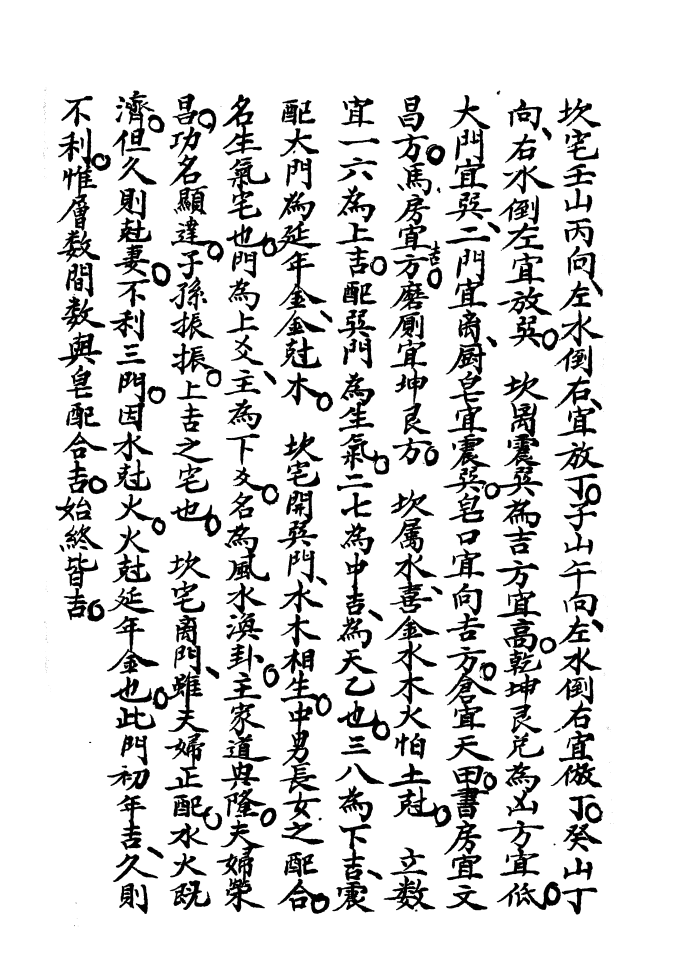 坎宅壬山丙向、左水倒右、宜放丁。子山午向、左水倒右宜倣丁。癸山丁
向、右水倒左宜放巽。　坎离震巽為吉方宜高。乾坤艮兌為凶方宜低。
大門宜巽、二門宜离、厨皂宜震巽。皂口宜向吉方。倉宜天田。書房宜文
昌方。馬房宜吉方。磨厠宜坤艮方。　坎属水、喜金水木火怕土尅。　立数
宜一六為上吉。配巽門為生氣。二七為中吉、為天乙也。三八為下吉、震
配大門為延年金、金尅木。　坎宅開巽門、水木相生。中男長女之配合。
名生氣宅也。門為上爻、主為下爻。名為風水渙卦。主家道興隆。夫婦榮
昌。功名顯達。子孫振振。上吉之宅也。　坎宅离門、雖夫婦正配。水火既
濟。但久則尅妻。不利三門。因水尅火。火尅延年金也。此門初年吉、久則
不利。惟層数間数與皂配合吉。始終皆吉。